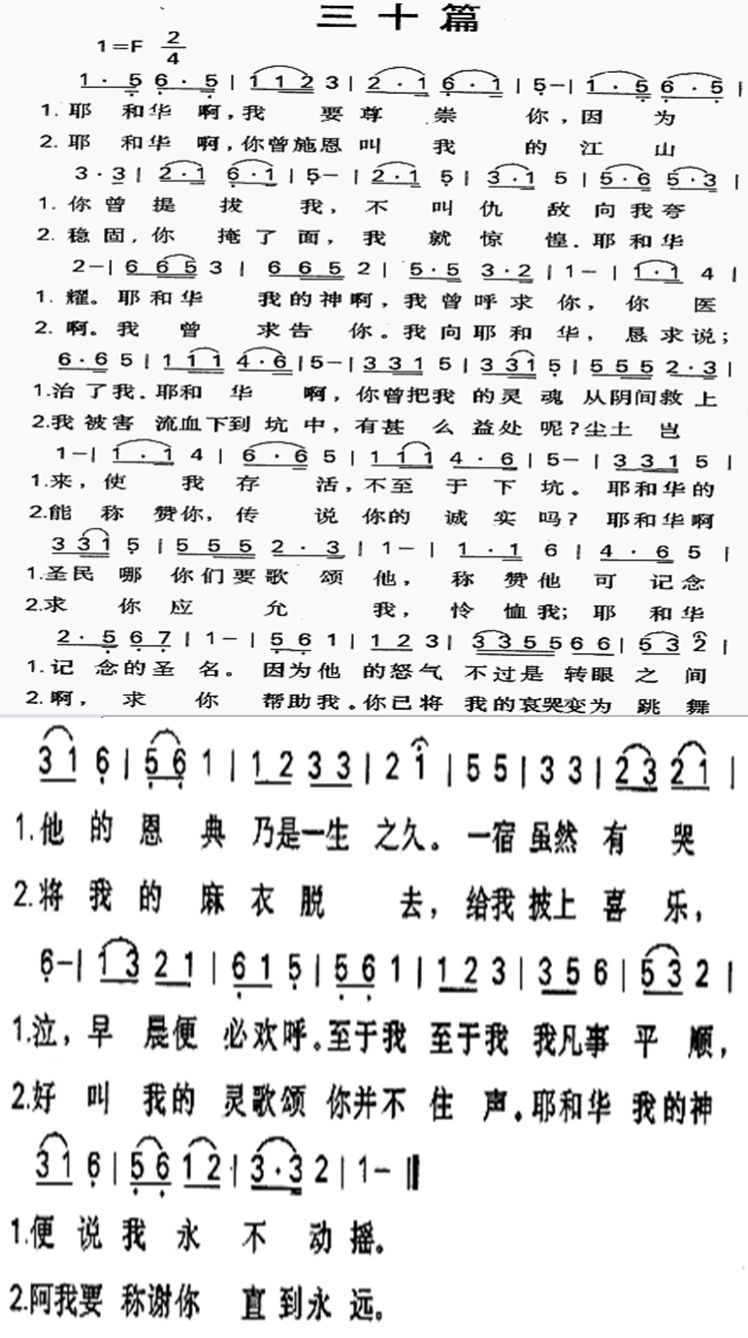 三十篇
1=F 2/4
1· 5 6· 5 | 1 1 2 3 | 2·1 6·1 | 5-| 1·5 6·5 |
1. 耶 和华 啊,我 要尊 崇 你,因 为
2. 耶 和华 啊,你曾施恩 叫 我 的 江 山
3·3 | 2·1 6·1 | 5- | 2·1 5 | 3·1 5 | 5·6 5·3 |
1. 你曾 提 拔 我, 不 叫 仇 敌 向 我 夸
2. 稳固,你 掩 了 面, 我 就 惊 惶.耶 和华
2-| 6 6 5 3 | 6 6 5 2 | 5·5 3·2 | 1-| 1·1 4 |
1. 耀。耶 和 华 我的神啊,我曾呼求 你, 你 医
2. 啊。我 曾 求告 你。我向耶和 华, 恳求说;
6·6 5 | 1 1 1 4·6 | 5-| 3 3 1 5 | 3 3 1 5 | 5 5 5 2·3 |
1.治 了 我.耶和 华 啊,你曾把我 的灵 魂 从阴间救上
2.我 被害 流血下到 坑 中,有甚 么 益处 呢?尘土 岂
1-| 1·1 4 | 6·6 5 | 1 1 1 4·6 | 5-| 3 3 1 5 |
1.来, 使 我 存 活,不至 于 下 坑。 耶和华的
2.能 称 赞你,传 说 你的 诚 实吗? 耶和华啊
3 3 1 5 | 5 5 5 2·3 | 1-| 1·1 6 | 4·6 5 |
1.圣民 哪 你们要歌 颂 他, 称 赞他 可 记念
2.求 你 应 允 我, 怜 恤我; 耶 和华
2·5 6 7 | 1-| 5 6 1 | 1 2 3 | 3 3 5 5 6 6 | 5 3 2 |
1. 记 念的圣 名。 因为他 的怒气 不过是 转眼 之 间
2. 啊, 求 你 帮助我。你已将 我的哀哭变为 跳 舞
3 1 6 | 5 6 1 | 1 2 3 3 | 2 i | 5 5 | 3 3 | 2 3 2 1 |
1.他 的 恩 典 乃是一生 之久。 一宿 虽然 有 哭
2.将 我 的 麻 衣 脱 去, 给我 披上 喜 乐,
6-| 1 3 2 1 | 6 1 5 | 5 6 1 | 1 2 3 | 3 5 6 | 5 3 2 |
1.泣,早 晨便 必欢呼。至于我 至于我 我凡事 平 顺,
2.好 叫 我的 灵歌颂 你并不 住 声。耶和华 我的神
3 1 6 | 5 6 1 2 | 3·3 2 | 1- ‖
1.便 说 我 永 不 动摇。
2.阿我要 称谢你 直 到永 远。